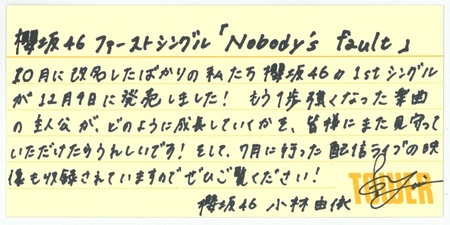 櫻坂46 ファーストシングル「Nobody's fault」
10月に改名したばかりの私たち櫻坂46の1stシングル
が12月9日に発売しました！ もう1歩強くなった楽曲
の主人公が、どのように成長していくかを、皆様にまた見守って
いただけたらうれしいです！そして、7月に行った配信ライブの映
像も収録されていますのでぜひご覧ください！
櫻坂46 小林由依
TOWER